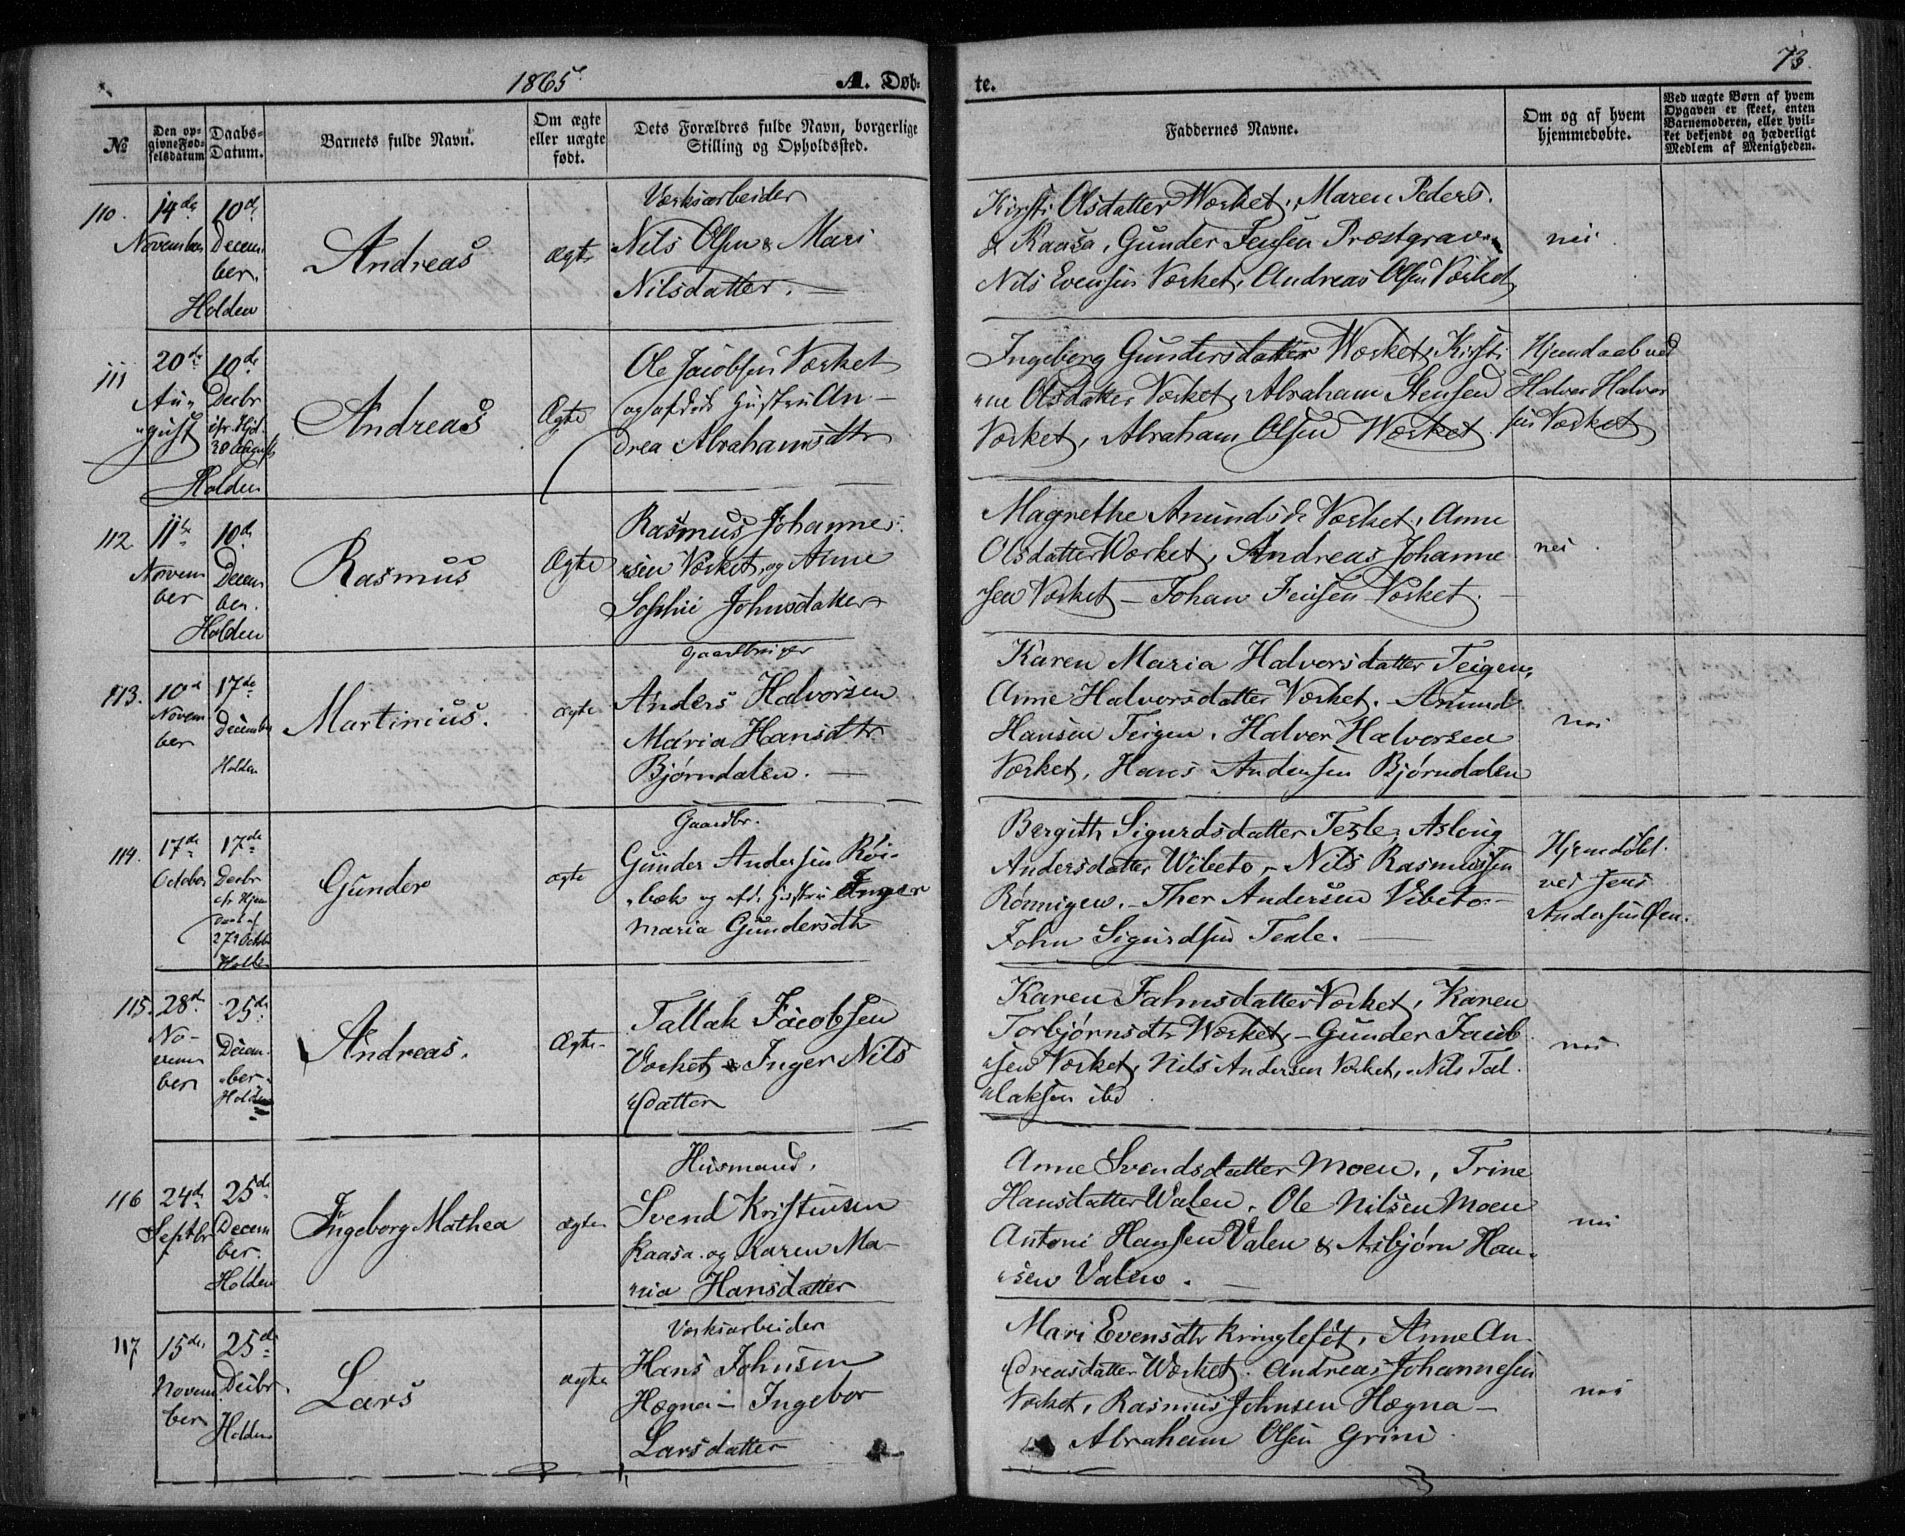 1865.
A. Døb-
te.
73.
No
Den op-
givne Fød-
selsdatum
Daabs-
Datum.
Barnets fulde Navn.
Om ægte
eller uægte
født.
Dets Forældres fulde Navn, borgerlige
Stilling og Opholdssted.
Faddernes Navne.
Om og af hvem
hjemmedøbte.
Ved uægte Børn af hvem
Opgaven er skeet, enten
Barnemoderen, eller hvil-
ket bekjendt og hæderligt
Medlem af Menigheden.
110.
14de
November
10de
Decem
ber.
Holden
Andreas
Ægte
Værksarbeider
Nils Olsen & Mari
Nilsdatter.
Kirsti Olsdatter Wærket, Maren Peders.
Kaasa, Gunder Jensen Præstgrav.
Nils Evensen Værket, Andreas Olsen Værket
nei.
111
20de
Au-
gust
10de
Decbr
28 August
Holden
Andreas
Ægte
Ole Jacobsen Værket
og afdøde Hustru An-
drea Abrahamsdtr
Ingeborg Gundersdatter Wærket, Kirsti
ne Olsdatter Værket, Abraham Stensen
Værket, Abraham Olsen Wærket.
Hjemdaab ved
Halver Halvor
sen Værket
112
11te
Novem
ber
10de
Decem
ber.
Holden
Rasmus
Ægte
Rasmus Johanne
sen Værket og Anne
Sophie Johnsdatter
Magrethe Amundsd. Værket, Anne
Olsdatter Værket, Andreas Johanne
sen Værket - Johan Jensen Værket.
nei.
113.
10d
Novem
ber
17de
December
Holden
Martinius.
ægte
Gaardbruger
Anders Halvorsen
Maria Hansdtr
Bjørndalen.
Karen Maria Halvorsdatter Teigen,
Anne Halvorsdatter Værket. Amund
Hansen Teigen, Halver Halvorsen
Værket, Hans Andersen Bjørndalen
nei
114.
17de
October
17de
Decbr
27 Octobr
Holden
Gunder
ægte
Gaardbr.
Gunder Andersen Røi-
bæk og afd. Hustru Inger
Maria Gundersdtr
Bergith Sigurdsdatter Texle, Asloug
Andersdatter Wibeto - Nils Rasmussen
Rønnigen. - Thor Andersen Vibeto -
John Sigurdsen Texle.
Hjemdøbt
ved Jens
Andersen Øen.
115.
28d.
No-
vem
ber
25de
Decem-
ber.
Holden
Andreas.
Ægte
Tallak Jacobsen
Værket & Inger Nils
datter
Karen Johnsdatter Værket, Karen
Torbjørnsdtr Wærket, - Gunder Jacob
sen Værket, Nils Andersen Værket, Nils Tal
laksen ibd.
nei
116
24de
Septbr
25de
Decem
ber.
Holden
Ingeborg Mathea
ægte
Husmand,
Svend Kristensen
Kaasa. og Karen Ma-
ria Hansdatter
Anne Svendsdatter Moen., Trine
Hansdatter Walen, Ole Nilsen Moen
Antoni Hansen Valen & Asbjørn Han-
sen Valen.
nei
117
15de
Novem
ber
25de
Decbr.
Holden
Lars
ægte
Værksarbeider
Hans Johnsen
Hægna - Ingebor
Larsdatter
Mari Evensdtr Kringlefot, Anne An-
dreasdatter Wærket. Andreas Johannesen
Værket, Rasmus Johnsen Hægna -
Abraham Olsen Grini.
nei